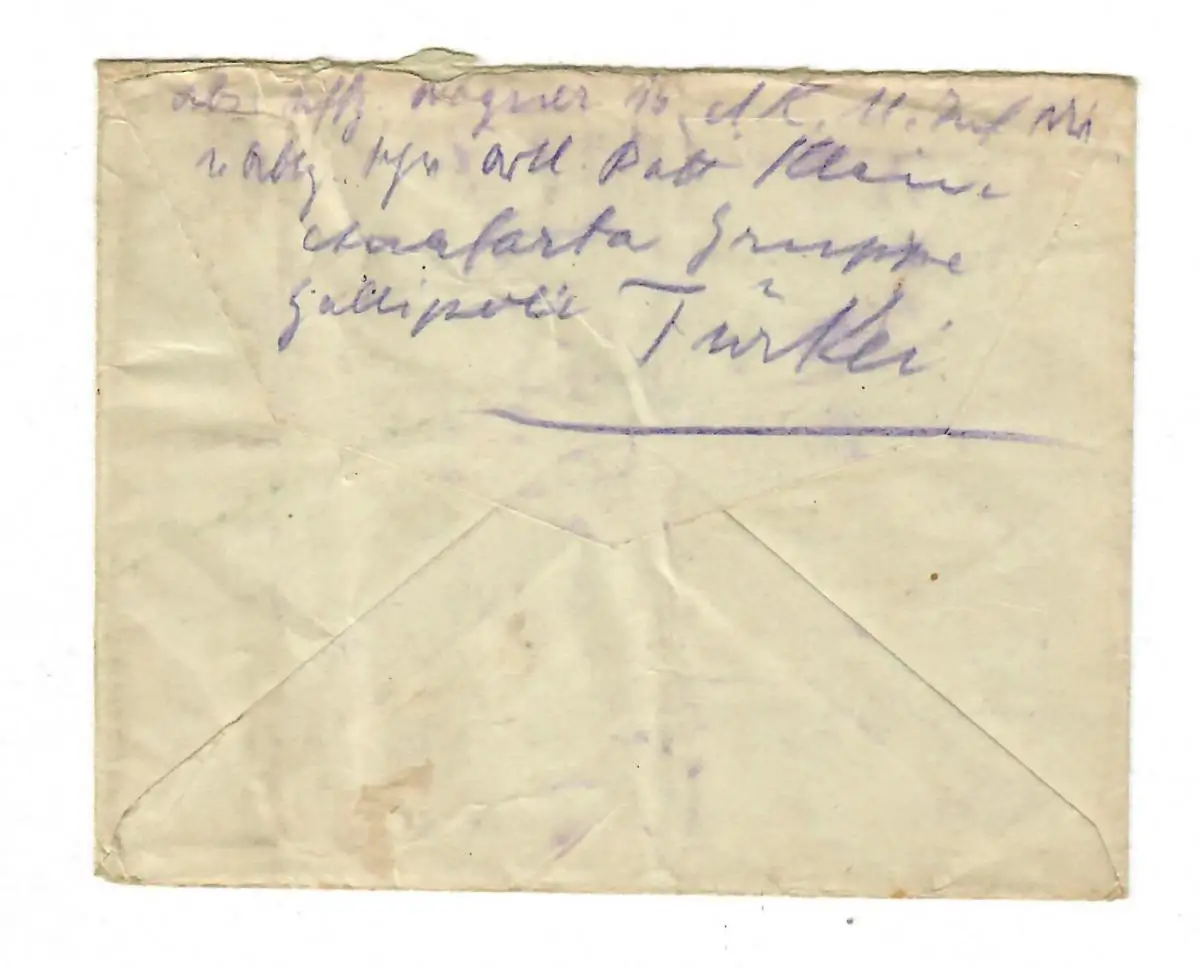 Abs Uffz. Wagner 15. A.K. 11. Inf Div.
Artl. Batt Klein.
Anafarta Gruppe
Gallipoli Türkei